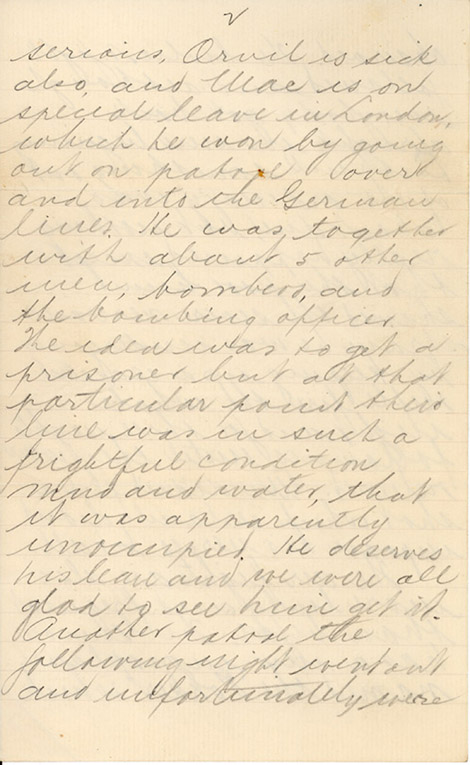 2
serious. Orvil is sick
also, and Mac is on
special leave in London,
which he won by going
out on patrol over
and into the German
lines. He was, together
with about 5 other
men, bombers, and
the bombing officer.
The idea was to get a
prisoner but at that
particular point their
line was in such a
frightful condition
mud and water, that
it was apparently
unoccupied. He deserves
his leave and we were all
glad to see him get it.
Another patrol the
following night went out
and unfortunately were